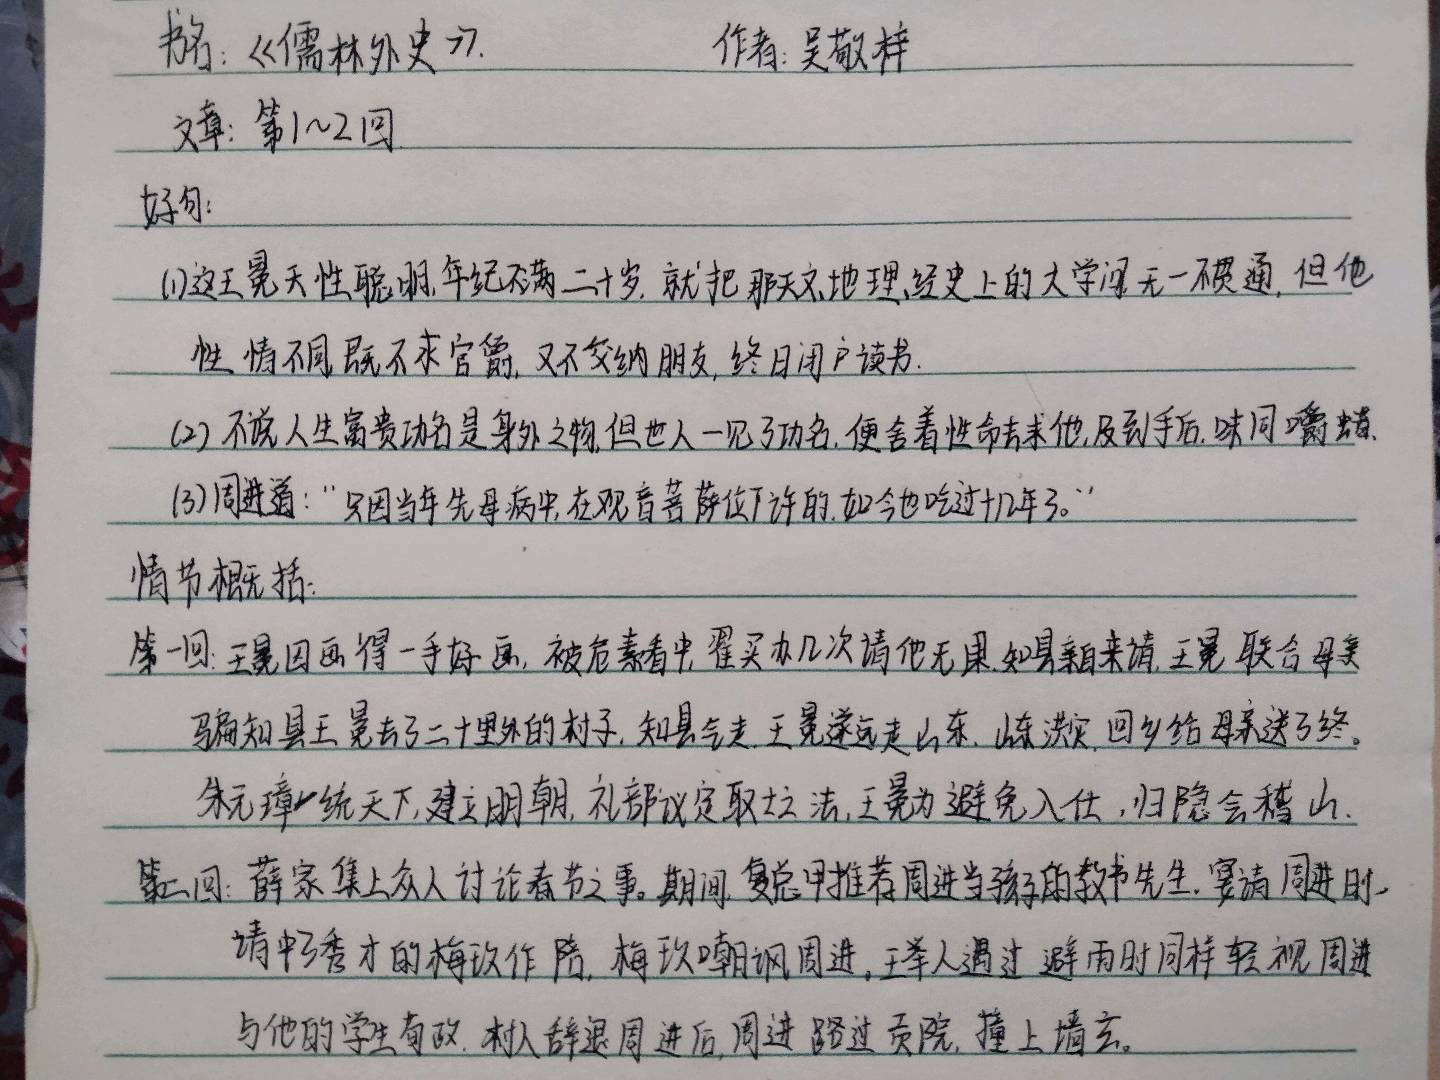 书名:《儒林外史》. 作者:吴敬梓
文章:第1~2回
好句:
(1)这王冕天性聪明,年纪不满二十岁,就把那天文、地理、经史上的大学问无一不贯通,但他
性情不同,既不求官爵,又不交纳朋友,终日闭户读书.
(2)不说人生富贵功名是身外之物,但世人一见了功名,便舍着性命去求他,及到手后,味同嚼蜡.
(3)周进道:“只因当年先母病中,在观音菩萨位下许的,如今也吃过十几年了。”
情节概括:
第一回:王冕因画得一手好画,被危素看中,翟买办几次请他无果,知县亲自来请,王冕联合母亲
骗知县王冕去了二十里外的村子,知县气走,王冕遂远走山东,山东洪灾,回乡给母亲送了终。
朱元璋一统天下,建立明朝,礼部议定取士之法,王冕为避免入仕,归隐会稽山.
第二回:薛家集上众人讨论春节之事。期间,夏总甲推荐周进当孩子的教书先生.宴请周进时,
请中了秀才的梅玖作陪,梅玖嘲讽周进,王举人遇过避雨时同样轻视周进
与他的学生有故.村人辞退周进后,周进路过贡院,撞上墙去。